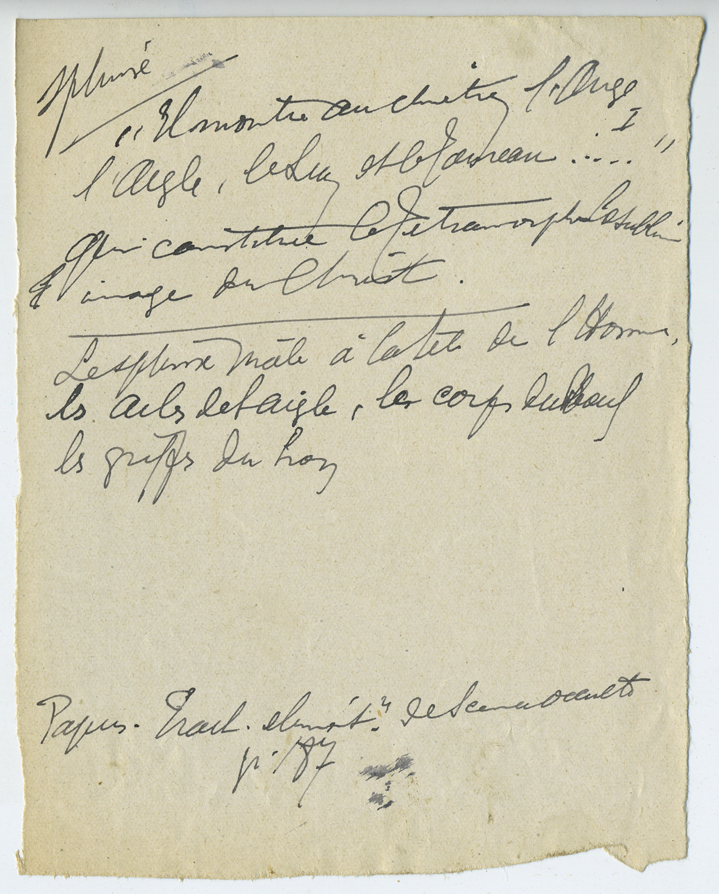 sphinx
"Il montre au chrétien l'Ange
I
l'Aigle, le Lion et le Taureau ....."
qui constitue le Tétramorphe la sublime
image du Christ.
Le sphinx mâle à la tête de l'Homme,
les ailes de l'aigle, le corps du Bœuf
les griffes du Lion
Papus. Trait. élément. de Science occulte
p. 187